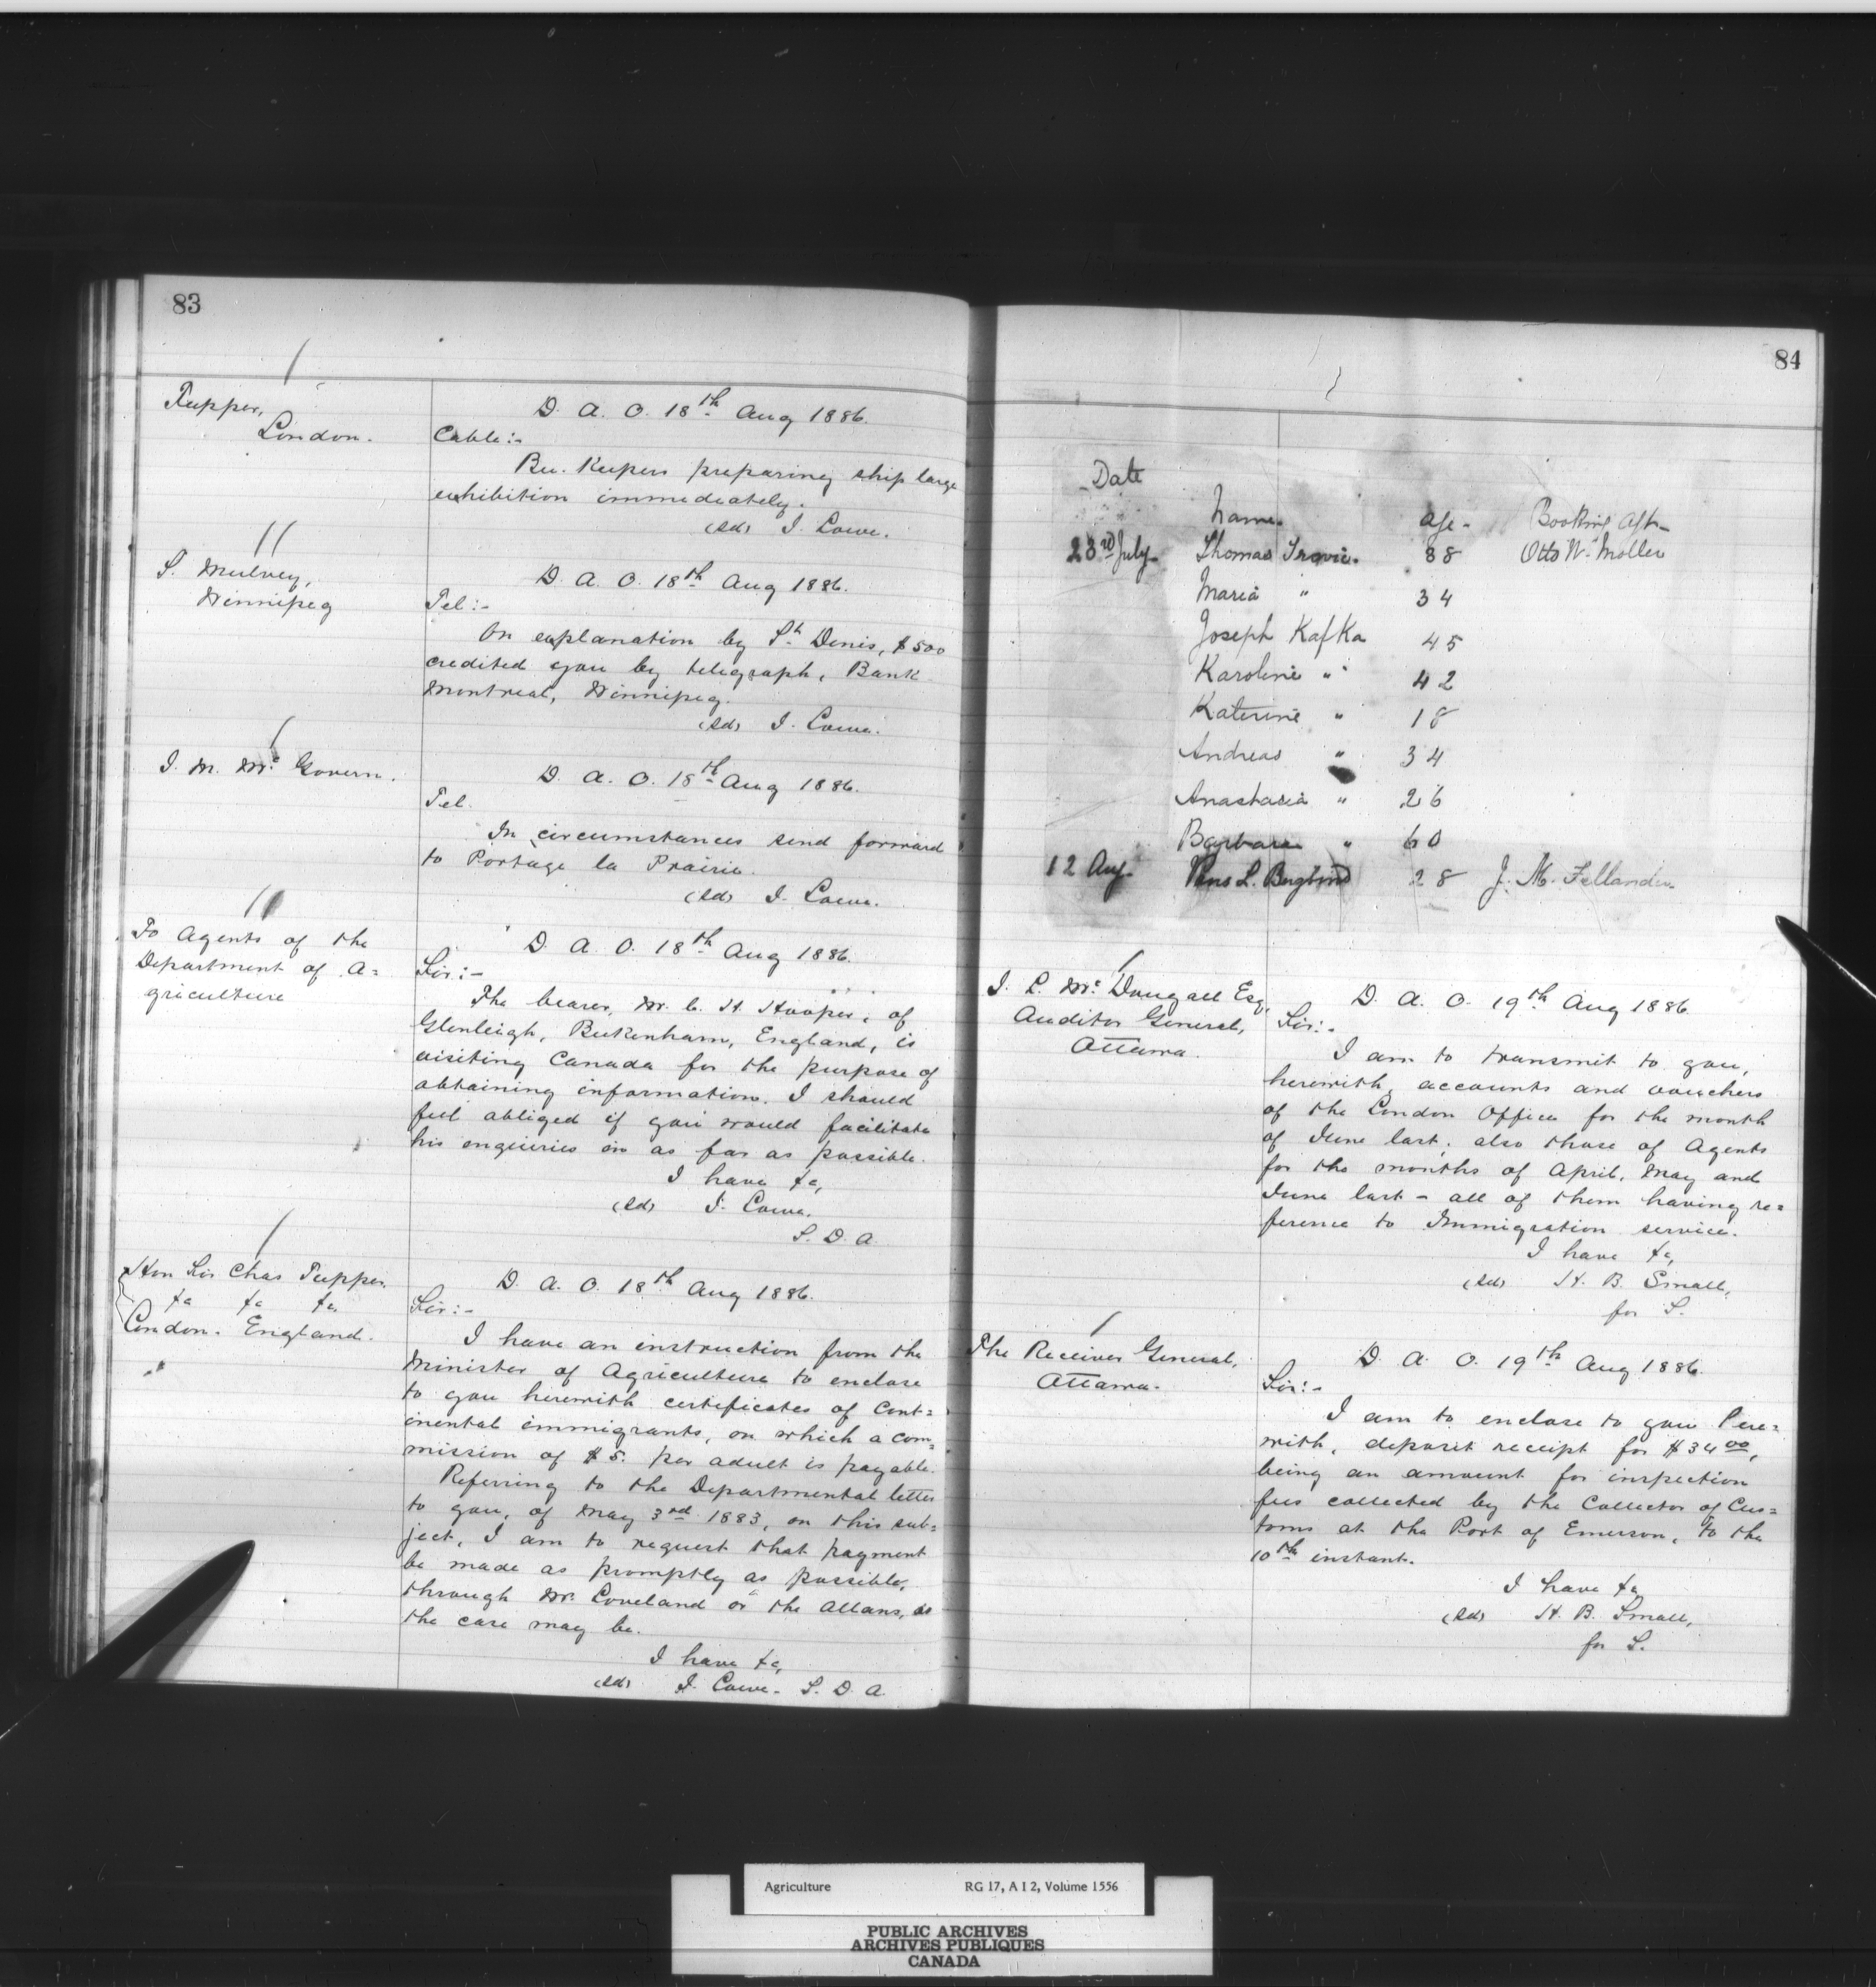 83
Tupper,
London.
D. A. O. 18th Aug 1886.
Cable:-
Bee-Keepers preparing ship large
exhibition immediately.
(sd) J. Lowe.
S. Mulvey,
Winnipeg
D. A. O. 18th Aug 1886.
Tel:-
On explanation by St Denis, $500
credited you by telegraph, Bank
Montreal, Winnipeg.
(sd) J. Lowe.
J. M. McGovern.
D. A. O. 18th Aug 1886.
Tel.
In circumstances send forward
to Portage la Prairie.
(sd) J. Lowe.
To Agents of the
Department of A=
griculture
D. A. O. 18th Aug 1886.
Sir:-
The bearer, Mr. C. H. Hooper, of
Glenleigh, Beckenham, England, is
visiting Canada for the purpose of
obtaining information. I should
feel obliged if you would facilitate
his enquiries in as far as possible.
I have &c,
(sd) J. Lowe,
S. D. A.
Hon Sir Chas Tupper.
&c &c &c,
London. England.
D. A. O. 18th Aug 1886.
Sir:-
I have an instruction from the
Minister of Agriculture to enclose
to you herewith certificates of Cont=
inental immigrants, on which a com=
mission of $5. per adult is payable.
Referring to the Departmental letter
to you, of May 3rd 1883, on this sub=
ject, I am to request that payment
be made as promptly as possible,
through Mr. Coveland or the Allans, as
the case may be.
I have &c,
(sd) J. Lowe. S. D. A.
84
Date
Name. age- Booking Agt-
23rd July- Thomas 38 Otto W. Moller
Maria " 34
Joseph Kafka 45
Karoline " 42
Katerine " 18
Andreas " 34
Anastasia " 26
Barbara " 60
12 Aug- L. Berglund 28 J. M. Fellander
J. L. McDougall Esq,
Auditor General,
Ottawa.
D. A. O. 19th Aug 1886.
Sir:-
I am to transmit to you,
herewith, accounts and vouchers
of the London Office for the month
of June last; also those of Agents
for the months of April, May and
June last - all of them having re=
ference to Immigration service.
I have &c,
(sd) H. B. Small,
for S.
The Receiver General,
Ottawa.
D. A. O. 19th Aug 1886.
Sir:-
I am to enclose to you here=
with, deposit receipt for $34.00,
being an amount for inspection
fees collected by the Collector of Cus=
toms at the Port of Emerson, to the
10th instant.
I have &c,
(sd) H. B. Small,
for S.
Agriculture RG 17, A I 2, Volume 1556
PUBLIC ARCHIVES
ARCHIVES PUBLIQUES
CANADA